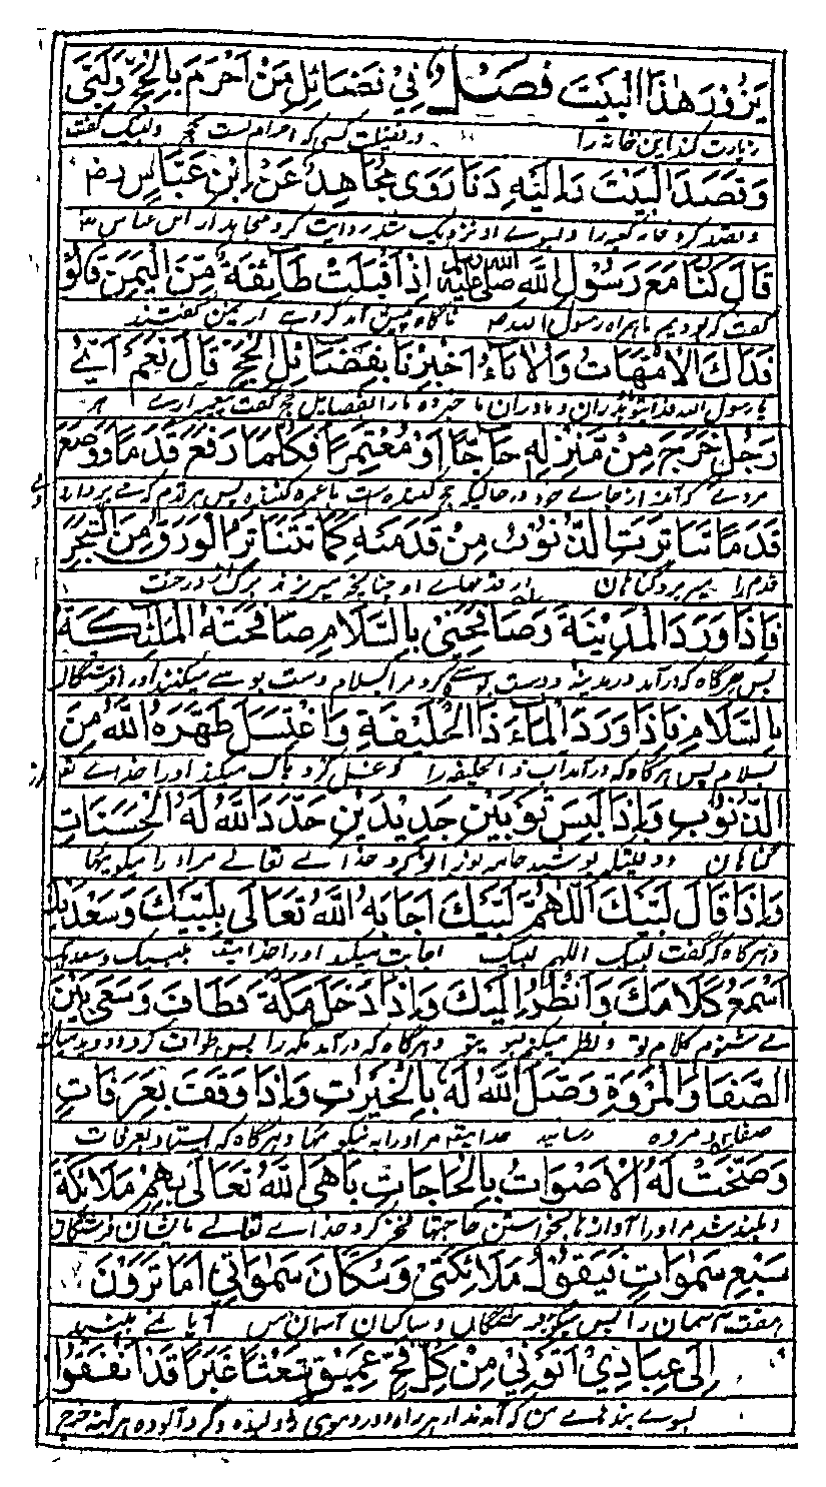 يَزُوْرَ هٰذَا الْبَيْتَ فَصْلٌ فِيْ فَضَائِلِ مَنْ اَحْرَمَ بِالْحَجِّ وَلَبّٰى
زیارت کند این خانه را در فضیلت کسی که احرام بست بحج و لبیک گفت
وَقَصَدَ الْبَيْتَ وَاِلَيْهِ دَنَا رَوٰى مُجَاهِدٌ عَنْ اِبْنِ عَبَّاسٍ رض
و قصد کرد خانه کعبه را و بسوے او نزدیک شد روایت کرد مجاهد از ابن عباس رض
قَالَ كُنَّا مَعَ رَسُوْلِ اللّٰهِ صلى الله عليه وسلم اِذْ اَقْبَلَتْ طَائِفَةٌ مِّنَ الْيَمَنِ قَالُوْ
گفت که بودیم ما همراه رسول الله ص ناگاه پیش آمد گروهے از یمن گفتند
فِدَاكَ الْاُمَّهَاتُ وَالْاٰبَاءُ اَخْبِرْنَا بِفَضَائِلِ الْحَجِّ قَالَ نَعَمْ اَيُّ
یا رسول الله فداے تو پدران و مادران ما خبر ده ما را بفضایل حج گفت پیغمبر آرے هر
رَجُلٍ خَرَجَ مِنْ مَّنْزِلِهٖ حَاجًّا اَوْ مُعْتَمِرًا فَكُلَّمَا رَفَعَ قَدَمًا وَوَضَعَ
مردے که آمد از جاے خود در حالیکه حج کننده است یا عمره کننده پس هر قدم که بردارد
قَدَمًا تَنَاثَرَتِ الذُّنُوْبُ مِنْ قَدَمَيْهِ كَمَا تَتَنَاثَرُ الْوَرَقُ مِنَ الشَّجَرِ
قدم را میریزد گناهان از قدمهاے او چنانچه میریزند برگ از درخت
فَاِذَا وَرَدَ الْمَدِيْنَةَ وَصَافَحَنِيْ بِالسَّلَامِ صَافَحَتْهُ الْمَلٰئِكَةُ
پس هرگاه که درآمد در مدینه و دست بوسے کرد مرا بسلام دست بوسے میکنند او را فرشتگان
بِالسَّلَامِ فَاِذَا وَرَدَ الْمَاءَ ذَا الْحُلَيْفَةِ وَاغْتَسَلَ طَهَّرَهُ اللّٰهُ مِنَ
بسلام پس هرگاه که درآمد آب ذا الحلیفه را و غسل کرد پاک میکند او را خداے تعا
الذُّنُوْبِ وَاِذَا لَبِسَ ثَوْبَيْنِ جَدِيْدَيْنِ جَدَّدَ اللّٰهُ لَهُ الْحَسَنَاتِ
گناهان و وقتیکه پوشید جامه نو کرد خداے تعالے مر او را نیکوئیها
وَاِذَا قَالَ لَبَّيْكَ اَللّٰهُمَّ لَبَّيْكَ اَجَابَهُ اللّٰهُ تَعَالٰى بِلَبَّيْكَ وَسَعْدَيْكَ
و هرگاه که گفت لبیک اللهم لبیک اجابت میکند او را خدایتعا بلبیک و سعدیک
اَسْمَعُ كَلَامَكَ وَاَنْظُرُ اِلَيْكَ وَاِذَا دَخَلَ مَكَّةَ فَطَافَ وَسَعٰى بَيْنَ
مے شنوم کلام تو و نظر میکنم بسویتو و هرگاه که درآمد مکه را پس طواف کرد و دوید میان
الصَّفَا وَالْمَرْوَةِ وَصَّلَ اللّٰهُ لَهٗ بِالْخَيْرَاتِ وَاِذَا وَقَفَ بِعَرَفَاتٍ
صفا و مروه رساند خدایتعا مر او را به نیکوئیها و هرگاه که ایستاد بعرفات
وَضَجَّتْ لَهُ الْاَصْوَاتُ بِالْحَاجَاتِ بَاهَى اللّٰهُ تَعَالٰى بِهِمْ مَلَائِكَةَ
و بلند شد مر او را آواز ها بخواستن حاجتها فخر کرد خداے تعالے بایشان فرشتگان
سَبْعِ سَمٰوَاتٍ فَيَقُوْلُ مَلَائِكَتِيْ وَسُكَّانَ سَمٰوَاتِيْ اَمَا تَرَوْنَ
هفت آسمان را پس میگوید فرشتگان و ساکنان آسمان من آیا نمے بینید
اِلٰى عِبَادِيْ اَتَوْنِيْ مِنْ كُلِّ فَجٍّ عَمِيْقٍ شُعْثًا غُبْرًا قَدْ اَنْفَقُوا
بسوے بندهاے من که آمدند از هر راه دور موی ژولیده و گرد آلوده هر آئینه خرج